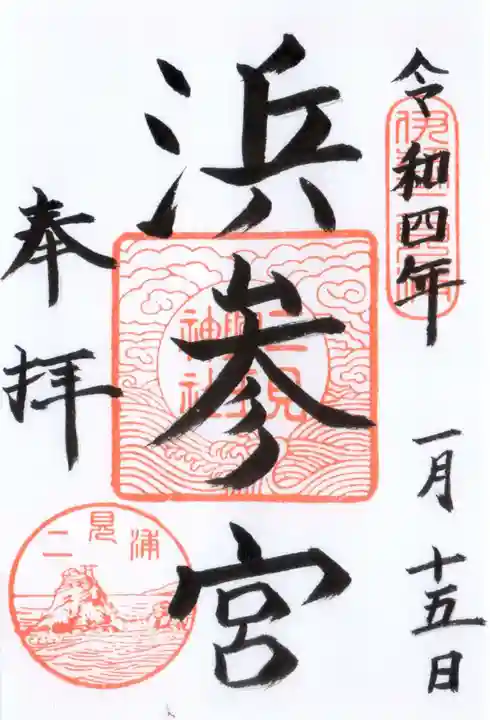 令和四年 一月 十五日
浜参宮
奉拝
二見興玉神社
二見浦